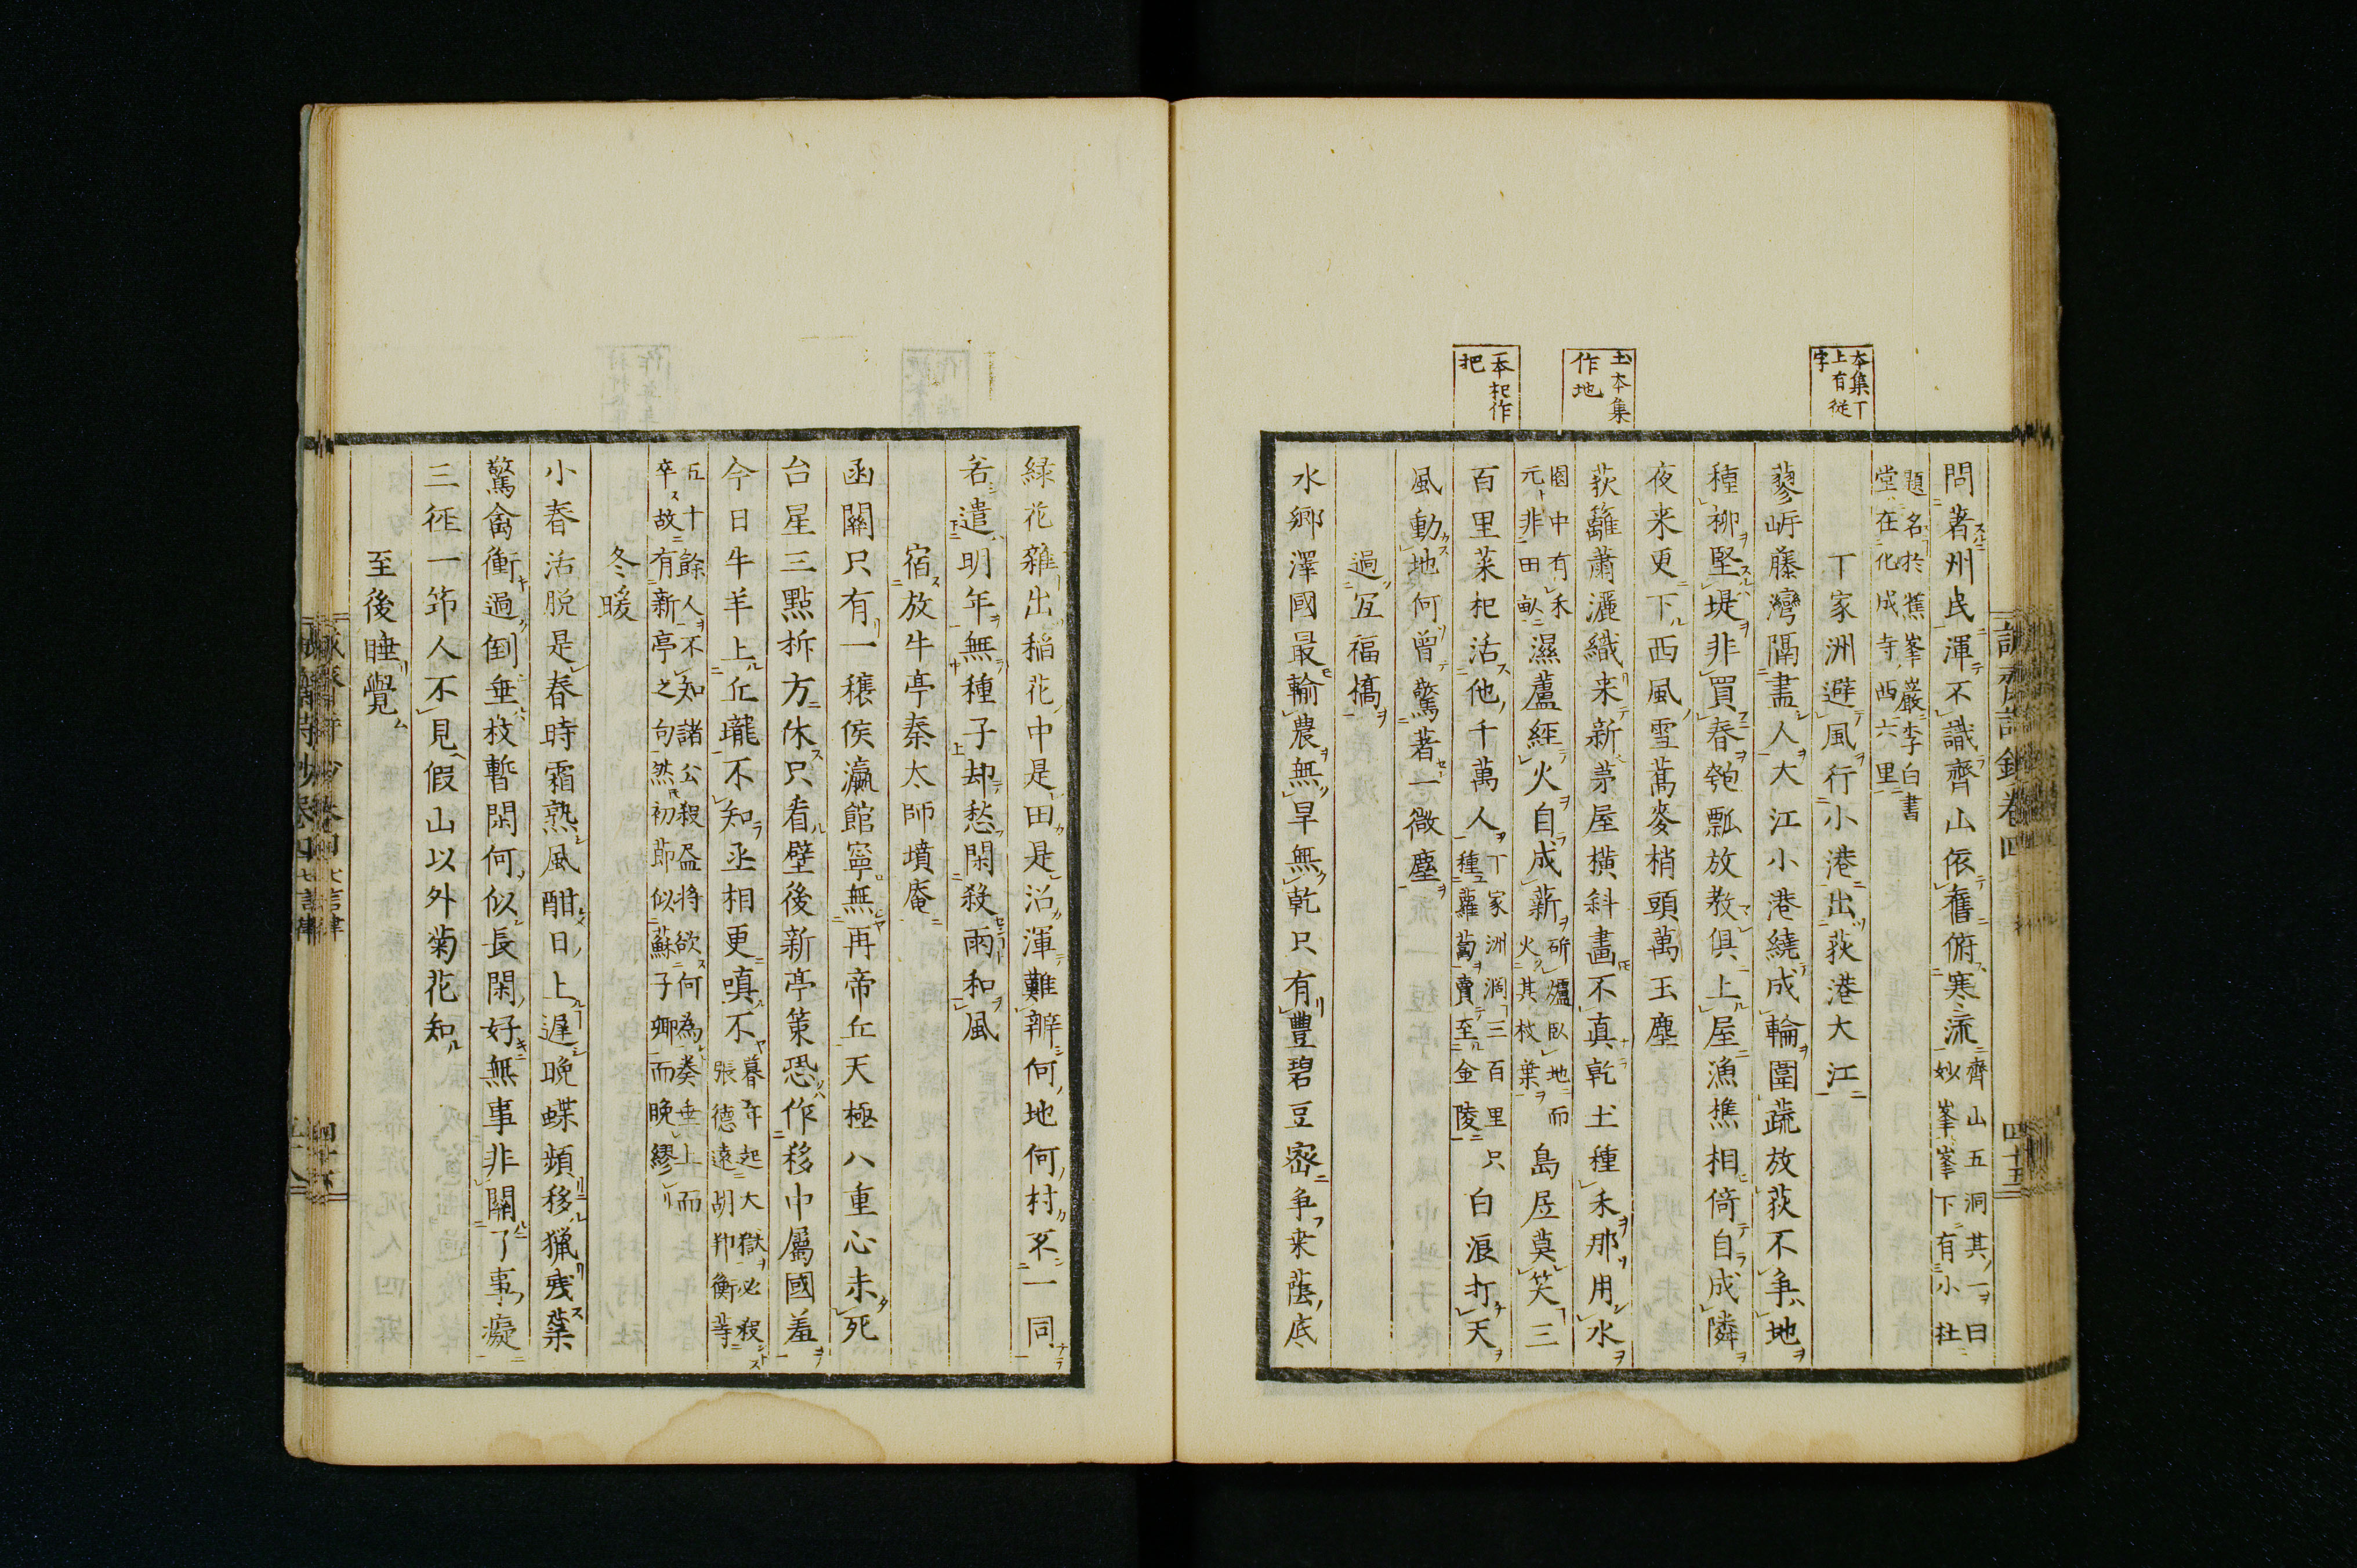 本集丁
上有從
字
土本集
作地
一本杞作
把
問著州民渾不識齊山依舊俯寒流齊山五洞其一曰妙峯峯下有小杜
題名於蕉峯巖李白書堂在化成寺西六里
丁家洲避風行小港出荻港大江
蓼岸藤灣隔盡人大江小港繞成輪圍蔬放荻不争地
種柳堅堤非買春匏瓢放教俱上屋漁樵相倚自成隣
夜来更下西風雪蕎麥梢頭萬玉塵
荻籬蕭灑織来新茅屋橫斜畫不真乾土種禾那用水
圈中有禾元非田畝濕蘆經火自成薪斫爐臥地而火其枝葉島居莫笑三
百里菜杞活他千萬人丁家洲濶三百里只種蘿蔔賣至金陵白浪打天
風動地何曾驚著一微塵
過宜福橋
水鄉澤國最輸農無旱無乾只有豐碧豆密争桒蔭底
緑花雜出稲花中是田是沼渾難辨何地何村不一同
若遣明年無種子却愁閑殺雨和風
宿放牛亭秦太師墳庵
函關只有一穰侯瀛館寧無再帝丘天極八重心未死
台星三點柝方休只看壁後新亭策恐作移中屬國羞
今日牛羊上丘壠不知丞相更嗔不暮年起大獄必殺張德遠胡邦衡等
五十餘人不知諸公殺盡將欲何為奏垂上而卒故有新亭之句然初節似蘇子卿而晚繆
冬暖
小春活脱是春時霜熟風酣日上遲晚蝶頻移獵殘蘂
驚禽衝過倒垂枝暫閑何似長閑好無事非關了事癡
三徑一筇人不見假山以外菊花知
至後睡覺